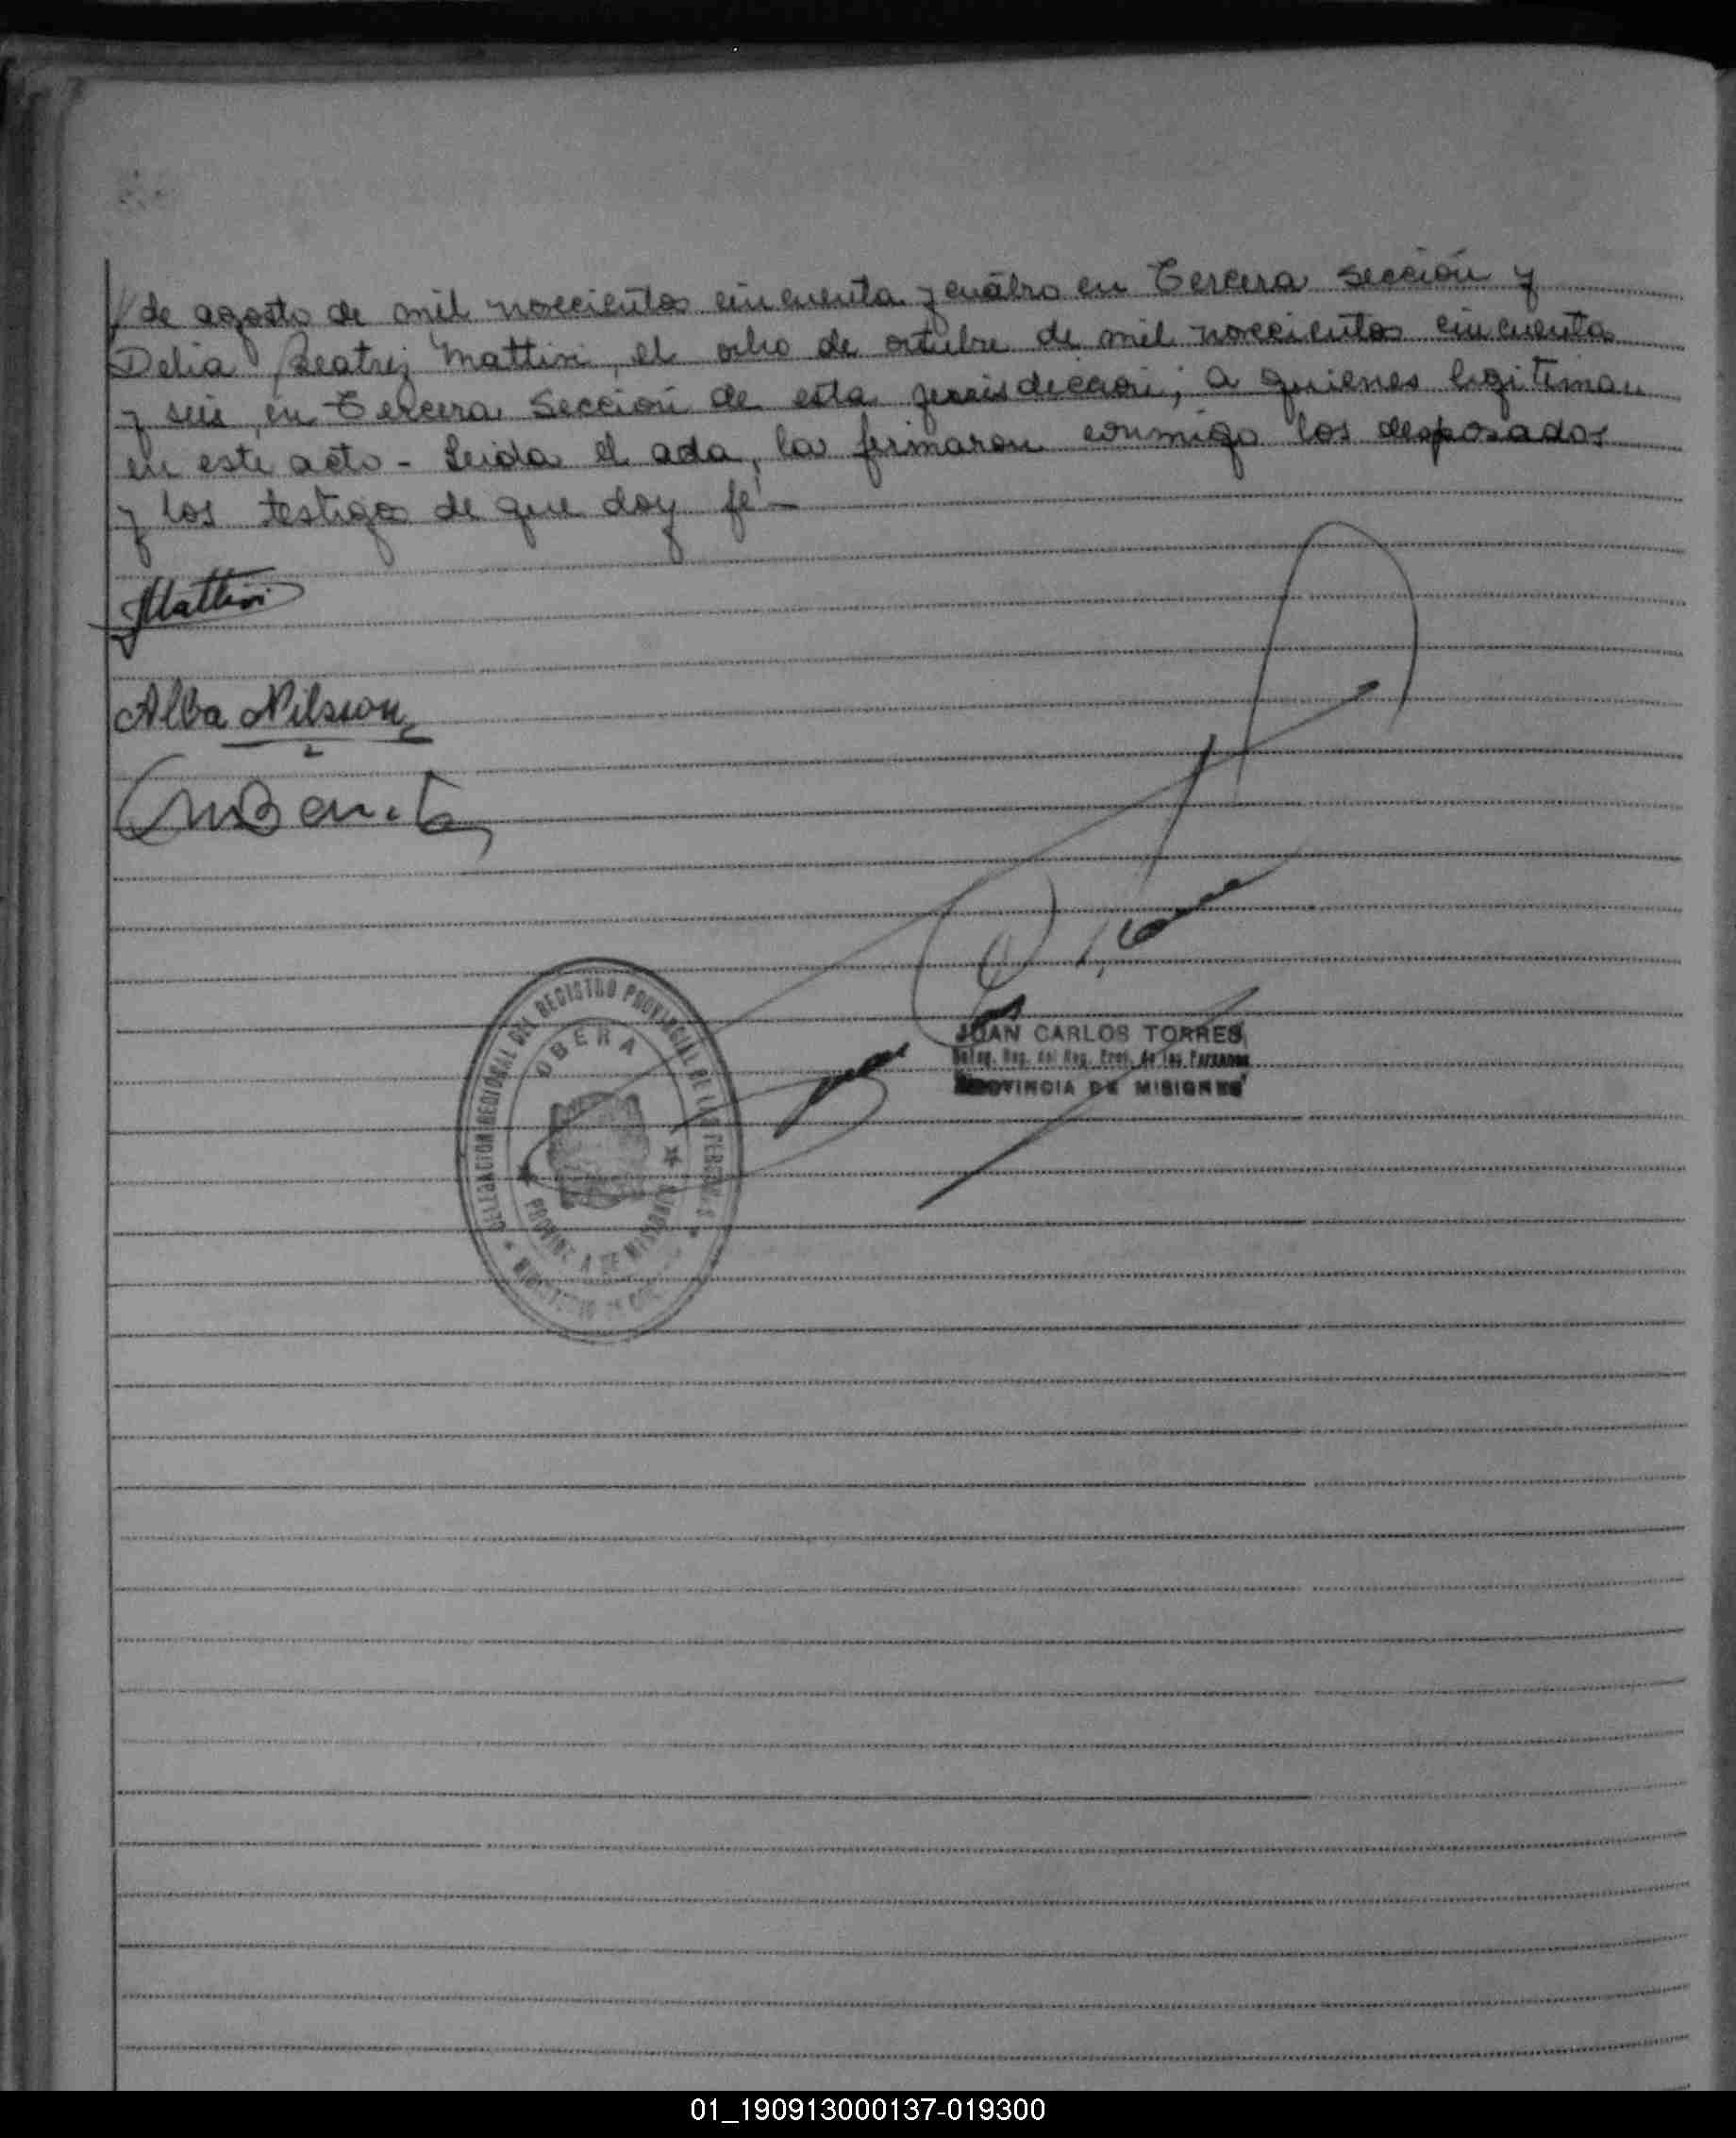 // de agosto de mil novecientos cincuenta y cuatro en Tercera Sección y
Delia Beatriz Mattivi, el ocho de octubre de mil novecientos cincuenta
y seis, en Tercera Sección de esta jurisdicción; a quienes legitiman
en este acto - Leida el acta, la firmaron conmigo los desposados
y los testigos de que doy fé -
Mattivi
Alba Nilsson
DELEGACION REGIONAL DEL REGISTRO PROVINCIAL DE LAS PERSONAS
OBERA
PROVINCIA DE MISIONES
MINISTERIO DE
JUAN CARLOS TORRES
Deleg. Reg. del Reg. Prov. de las Personas
PROVINCIA DE MISIONES
01_190913000137-019300